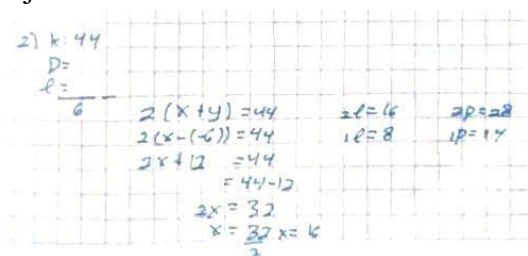 2) k: 44
P=
l=
6
2(x+y) = 44
2(x-(-6)) = 44
2x+12 = 44
= 44-12
2x = 32
x = 32/2 x = 16
2l=16
1l=8
2p=28
1p=14